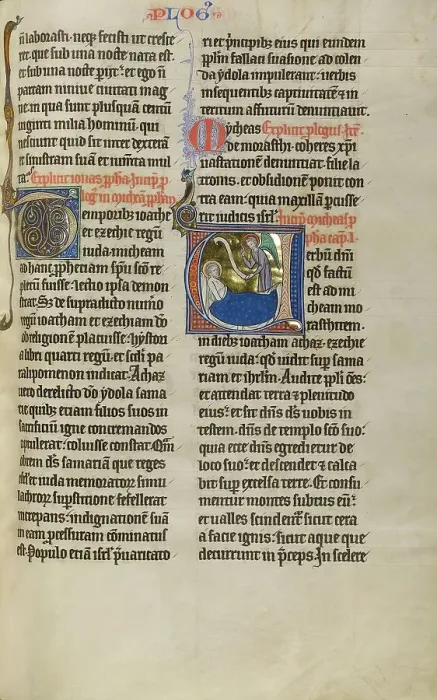 PLOG
ñ laborasti· neq; fecisti ut cresce
ret· que sub una nocte nata est·
et sub una nocte pijt· et ego ñ
parcam niniue ciuitati mag
ne· in qua sunt plusquam centū
uiginti milia hominum· qui
nesciunt quid sit inter dexterā
et sinistram suā et iumēta mul
ta· Explicit ionas ppha· Incip p
log' in micheā ppham
Temporibz ioathe
et ezechie regū
iuda· micheam
ad hanc ppheciam spū scō re
pletū fuisse· lectio ipsa demon
strat· Sz de supradicto numo
regū ioatham et ezechiam dō
ob religionē placuisse· hystori
a libri quarti regū· et scdi pa
ralipomenon indicat· Achaz
uero derelicto dō ydola sama
rie quibz etiam filios suos in
sacrificiū igne concremandos
optulerat· coluisse constat· Qm
obrem dns samariam que reges
isrl et iuda memoratos simu
lachrorz supsticione fefellerat
increpans· indignationē suā
in eam pcessuram cōminatus
est· Populo etiā isrl puaricato
ri et pncipibz eius qui eundem
pplm fallaci suasione ad colen
da ydola impulerant· uerbis
insequentibz captiuitatē et in
teritum affuturū denuntiauit·
Mycheas Explicit plogus· Icip
de morasthi· coheres xpi
uastationē denuntiat· filie la
tronis· et obsidionē ponit con
tra eam· quia maxillā pcusse
rit iudicis isrl· Incip micheas p
pha cap· i·
Uerbū dnī
qd factū
est ad mi
cheam mo
rasthitem·
in diebz ioatham achaz· ezechie
regū iuda· qd uidit sup sama
riam et ihrlm· Audite ppli oēs·
et attendat terra et plenitudo
eius· et sit dns ds uobis in
testem· dns de templo scō suo·
quia ecce dns egredietur de
loco suo· et descendet et calca
bit sup excelsa terre· Et consu
mentur montes subtus eū·
et ualles scindentr sicut cera
a facie ignis· sicut aque que
decurrunt in pceps· In scelere